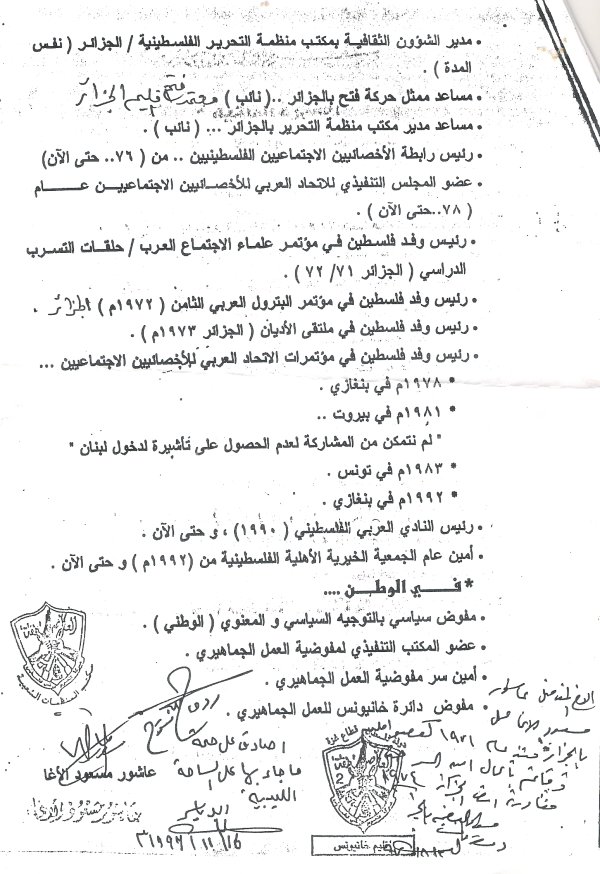 • مدير الشؤون الثقافية بمكتب منظمة التحرير الفلسطينية / الجزائر ( نفس
المدة ) .
• مساعد ممثل حركة فتح بالجزائر ..( نائب )
• مساعد مدير مكتب منظمة التحرير بالجزائر ... ( نائب ) .
• رئيس رابطة الأخصائيين الاجتماعيين الفلسطينيين .. من ( ٧٦.. حتى الآن)
• عضو المجلس التنفيذي للاتحاد العربي للأخصائيين الاجتماعيين عام
( ٧٨..حتى الآن ) .
• رئيس وفد فلسطين في مؤتمر علماء الاجتماع العرب / حلقات التسرب
الدراسي ( الجزائر ٧١/ ٧٢ ) .
• رئيس وفد فلسطين في مؤتمر البترول العربي الثامن ( ١٩٧٢م ) الجزائر .
• رئيس وفد فلسطين في ملتقى الأديان ( الجزائر ١٩٧٣م ) .
• رئيس وفد فلسطين في مؤتمرات الاتحاد العربي للأخصائيين الاجتماعيين ...
* ١٩٧٨م في بنغازي .
* ١٩٨١م في بيروت ..
" لم نتمكن من المشاركة لعدم الحصول على تأشيرة لدخول لبنان "
* ١٩٨٣م في تونس .
* ١٩٩٢م في بنغازي .
• رئيس النادي العربي الفلسطيني ( ١٩٩٠) ، و حتى الآن .
• أمين عام الجمعية الخيرية الأهلية الفلسطينية من (١٩٩٢م ) و حتى الآن .
* فـــي الوطـــن ....
• مفوض سياسي بالتوجيه السياسي و المعنوي ( الوطني ) .
• عضو المكتب التنفيذي لمفوضية العمل الجماهيري .
• أمين سر مفوضية العمل الجماهيري .
• مفوض دائرة خانيونس للعمل الجماهيري .
العاصفة
مكتب المنظمات الشعبية
اصادق على صحة
ما جاء بها على الساحة
الليبية
عاشور مسعود الأغا
العاصفة
إقليم خانيونس